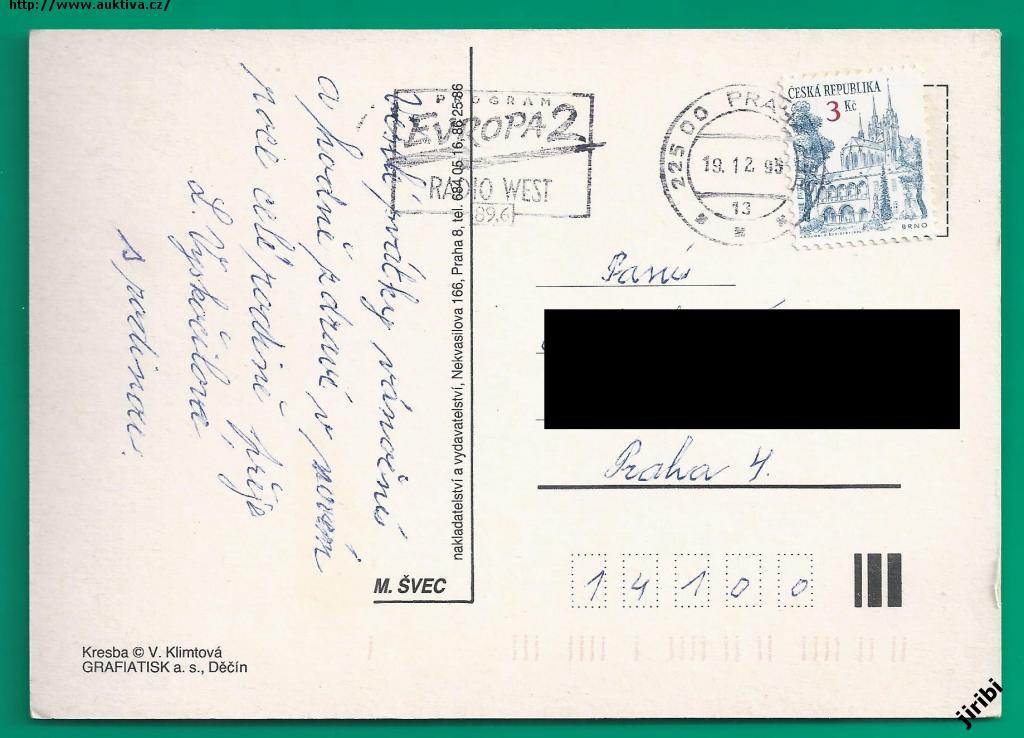 http://www.auktiva.cz/
Veselé svátky vánoční
a hodně zdraví v novém
roce celé rodině přeje
L. Vyskočilová
s rodinou.
PROGRAM
EVROPA 2
RADIO WEST
89.6
225 00 PRAHA
19.12.95
13
ČESKÁ REPUBLIKA
3 Kč
BRNO
nakladatelství a vydavatelství, Nekvasilova 166, Praha 8, tel. 684 05 16, 86 25 86
M. ŠVEC
Paní
Praha 4.
1 4 1 0 0
Kresba © V. Klimtová
GRAFIATISK a. s., Děčín
jiribi